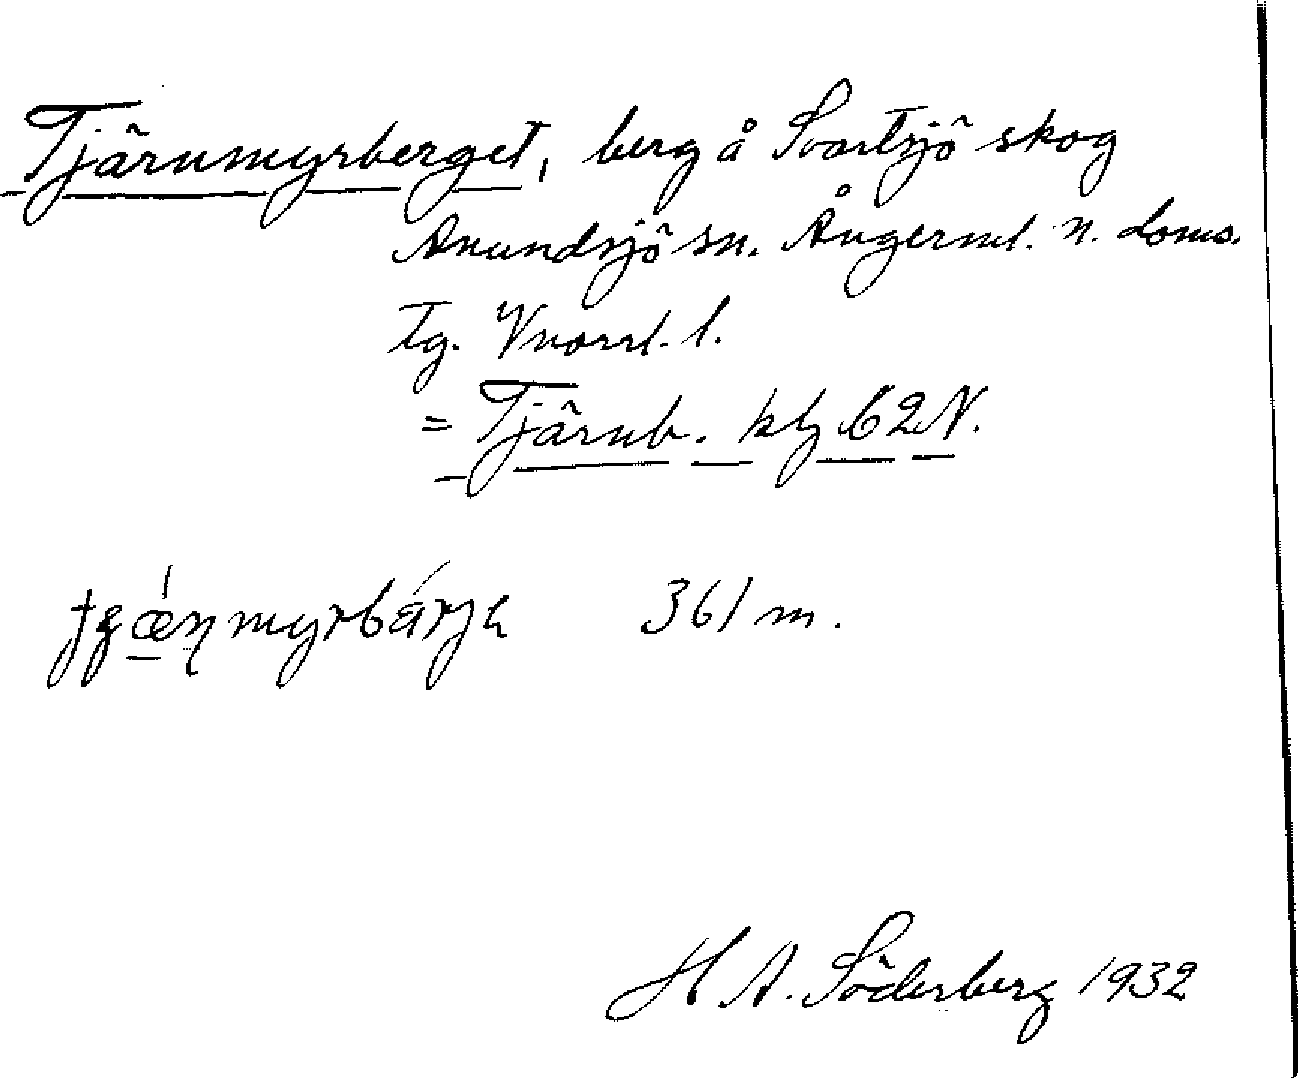 Tjärnmyrberget, berg å Svartsjö skog
Anundsjö sn. Ångerml. n. doms.
tg. Vnorrl. l.
= Tjärnb. kbl 62 N.
361 m.
H A. Söderberg 1932